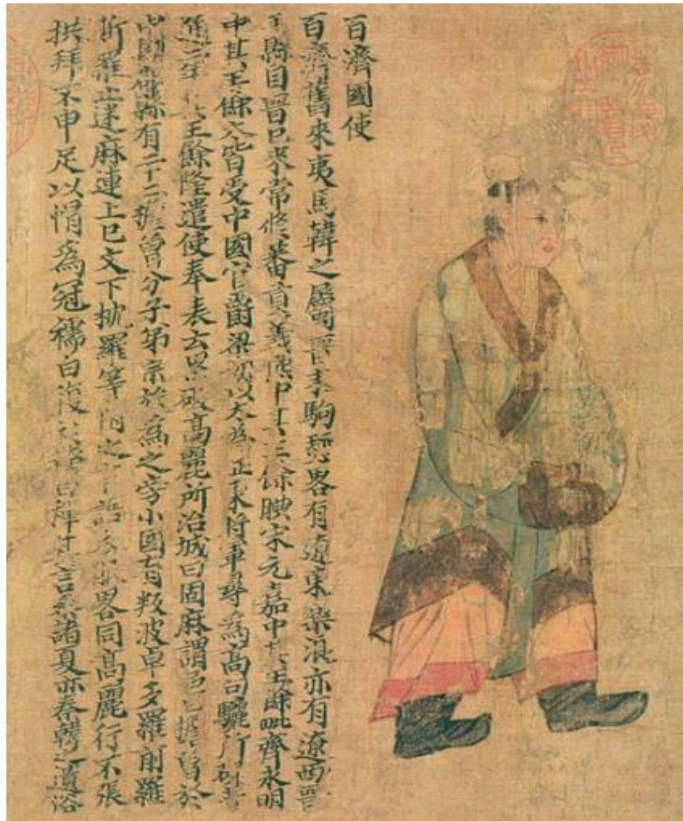 百濟國使
百濟舊來夷馬韓之屬晋末駒驪畧有遼東樂浪亦有遼西晋
平縣自晋已來常修蕃貢義熈中其王餘腆宋元嘉中其王餘毗齊永明
中其王餘太皆受中國官爵梁初以太為征東將軍尋為高句驪所破普
通二年其王餘隆遣使奉表云累破高麗所治城曰固麻謂邑曰檐魯於
中國郡縣有二十二檐魯分子弟宗族為之旁小國有叛波卓多羅前羅
斯羅止迷麻連上巳文下枕羅等附之言語衣服畧同高麗行不張
拱拜不申足以帽為冠襦曰複衫袴曰褌其言參諸夏亦秦韓之遺俗